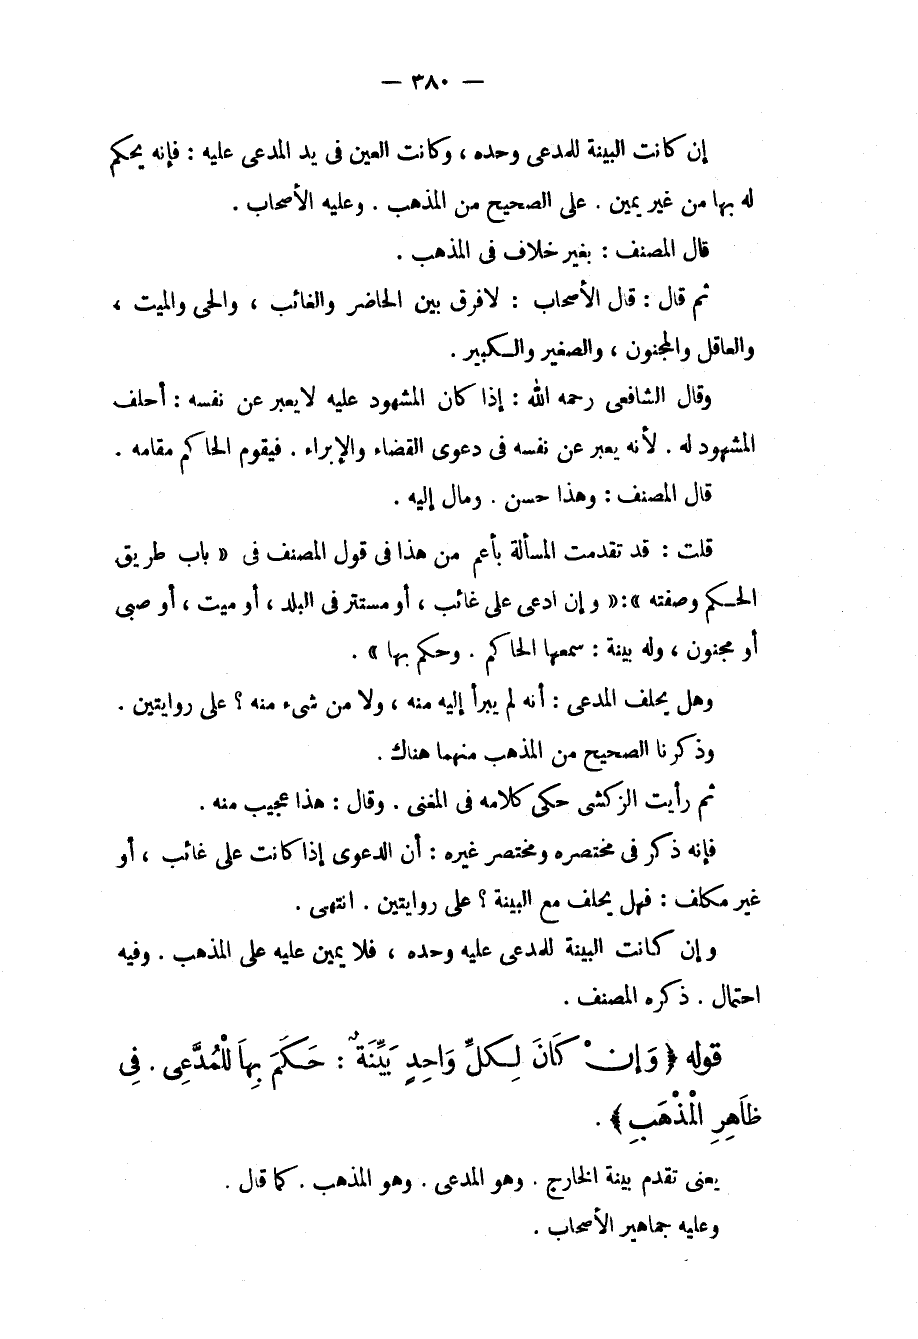 — ٣٨٠ —
إن كانت البينة للمدعى وحده ، وكانت العين فى يد المدعى عليه : فإنه يحكم
له بها من غير يمين . على الصحيح من المذهب . وعليه الأصحاب .
قال المصنف : بغير خلاف فى المذهب .
ثم قال : قال الأصحاب : لافرق بين الحاضر والغائب ، والحى والميت ،
والعاقل والمجنون ، والصغير والـكبير .
وقال الشافعى رحمه الله : إذا كان المشهود عليه لايعبر عن نفسه : أحلف
المشهود له . لأنه يعبر عن نفسه فى دعوى القضاء والإبراء . فيقوم الحاكم مقامه .
قال المصنف : وهذا حسن . ومال إليه .
قلت : قد تقدمت المسألة بأعم من هذا فى قول المصنف فى « باب طريق
الحـكم وصفته » : « و إن ادعى على غائب ، أو مستتر فى البلد ، أو ميت ، أو صبى
أو مجنون ، وله بينة : سمعها الحاكم . وحكم بها » .
وهل يحلف المدعى : أنه لم يبرأ إليه منه ، ولا من شىء منه ؟ على روايتين .
وذكرنا الصحيح من المذهب منهما هناك .
ثم رأيت الزركشى حكى كلامه فى المغنى . وقال : هذا عجيب منه .
فإنه ذكر فى مختصره ومختصر غيره : أن الدعوى إذا كانت على غائب ، أو
غير مكلف : فهل يحلف مع البينة ؟ على روايتين . انتهى .
و إن كانت البينة للمدعى عليه وحده ، فلا يمين عليه على المذهب . وفيه
احتمال . ذكره المصنف .
قوله ﴿ وَإِنْ كَانَ لِـكلِّ وَاحِدٍ بَيِّنَةٌ : حَكَمَ بِهاَ لْلمُدَّعِى . فِى
ظاَهِرِ الْمْذْهَبِ ﴾ .
يعنى تقدم بينة الخارج . وهو المدعى . وهو المذهب . كما قال .
وعليه جماهير الأصحاب .